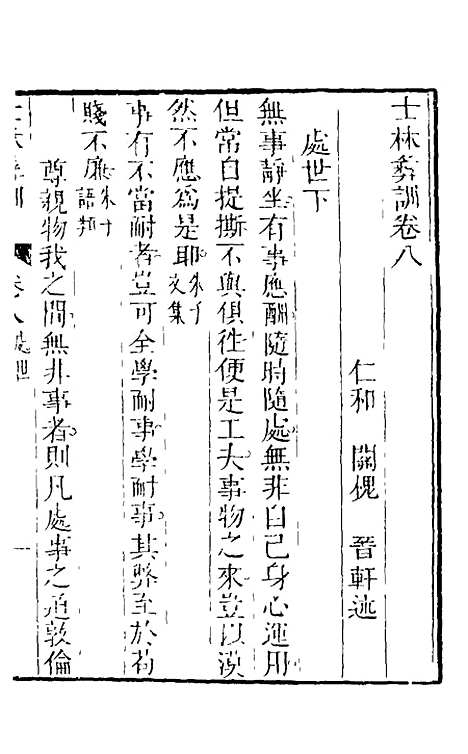 士林彝訓卷八
仁和 關槐 晉軒述
處世下
無事靜坐有事應酬隨時隨處無非自己身心運用
但常自提撕不與俱往便是工夫事物之來豈以漠
然不應爲是耶朱子文集
事有不當耐者豈可全學耐事學耐事其弊至於苟
賤不廉朱子語類
尊親物我之間無非事者則凡處事之道敦倫
士林彝訓 卷八處世 一